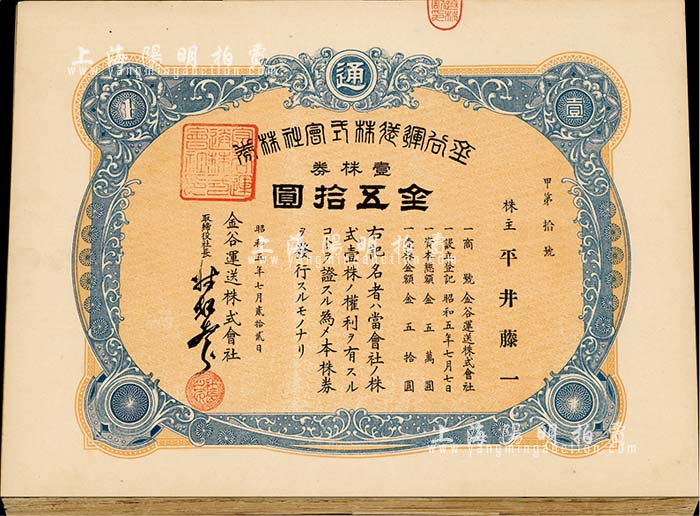 上海陽明拍賣
www.yangmingauction.com
通
1
壹
金谷運送株式會社株券
壹株券
金五拾圓
甲第拾號
株主 平井藤一
一商號 金谷運送株式會社
一設立登記 昭和五年七月七日
一資本總額 金五萬圓
一壹株金額 金五拾圓
右記名者ハ當會社ノ株
式壹株ノ權利ヲ有スル
コトヲ證スル為メ本株券
ヲ發行スルモノナリ
昭和五年七月貳拾貳日
金谷運送株式會社
取締役社長
上海陽明拍賣
www.yangmingauction.com
上海陽明拍賣
www.yangmingauction.com